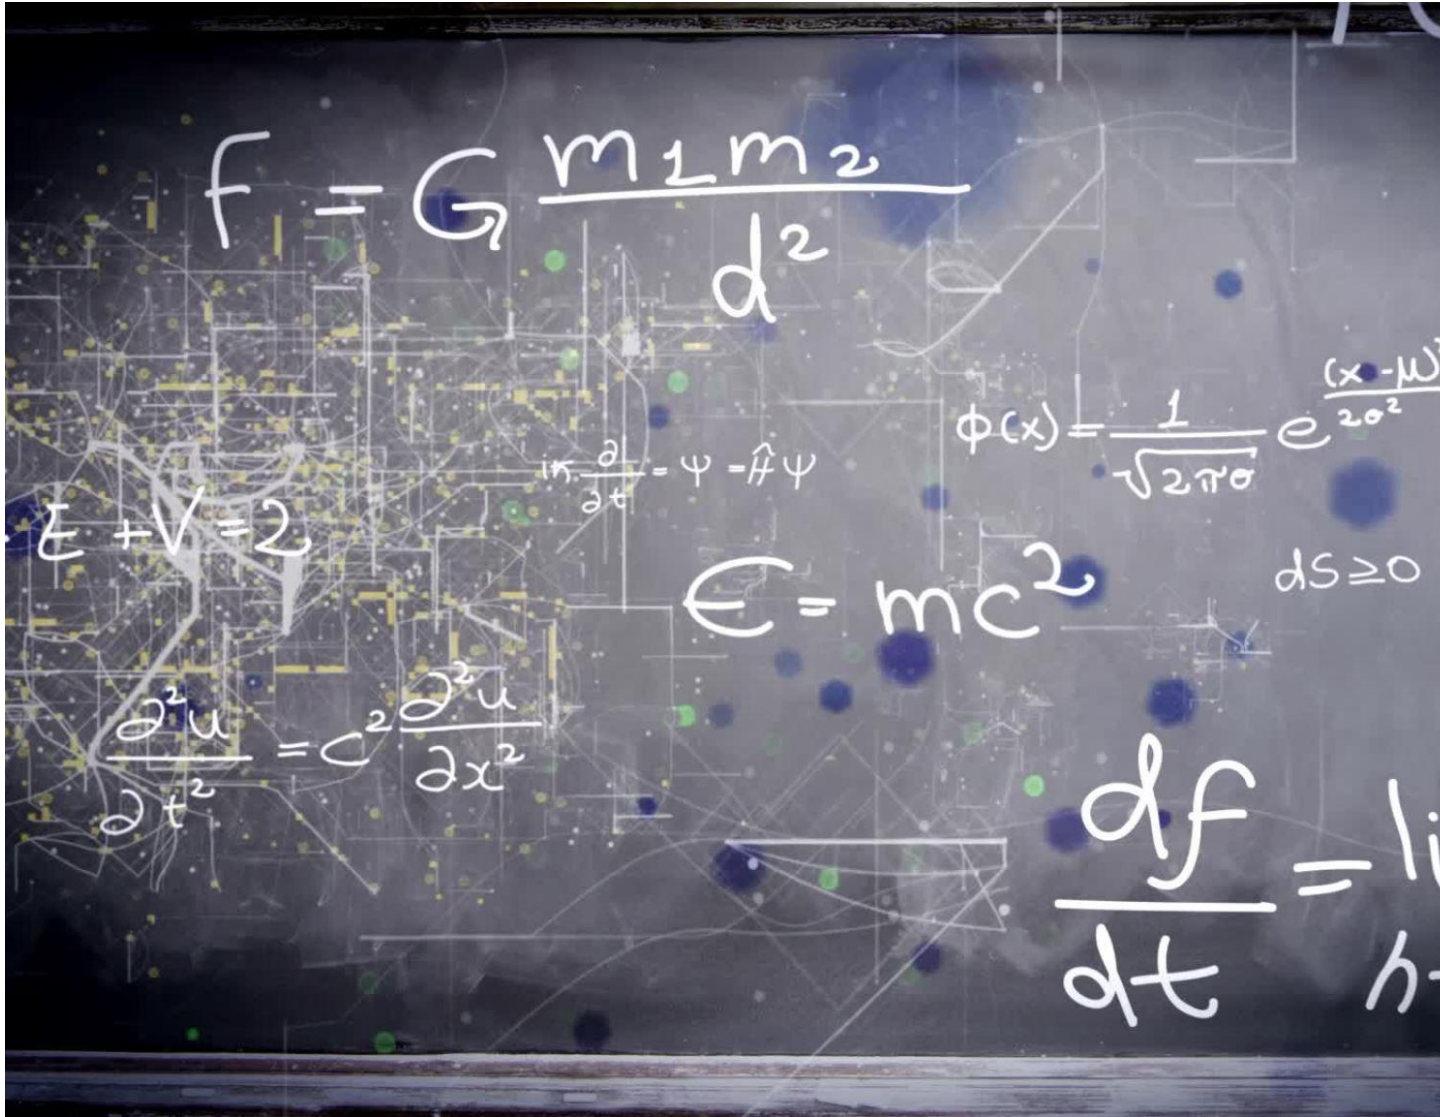 F = G m1m2/d²
ϕ(x) = 1/√2πσ e^(x-μ)/2σ²
iħ ∂/∂t = Ψ = ĤΨ
E + V = 2
E = mc²
dS ≥ 0
∂²u/∂t² = c² ∂²u/∂x²
df/dt = li
h